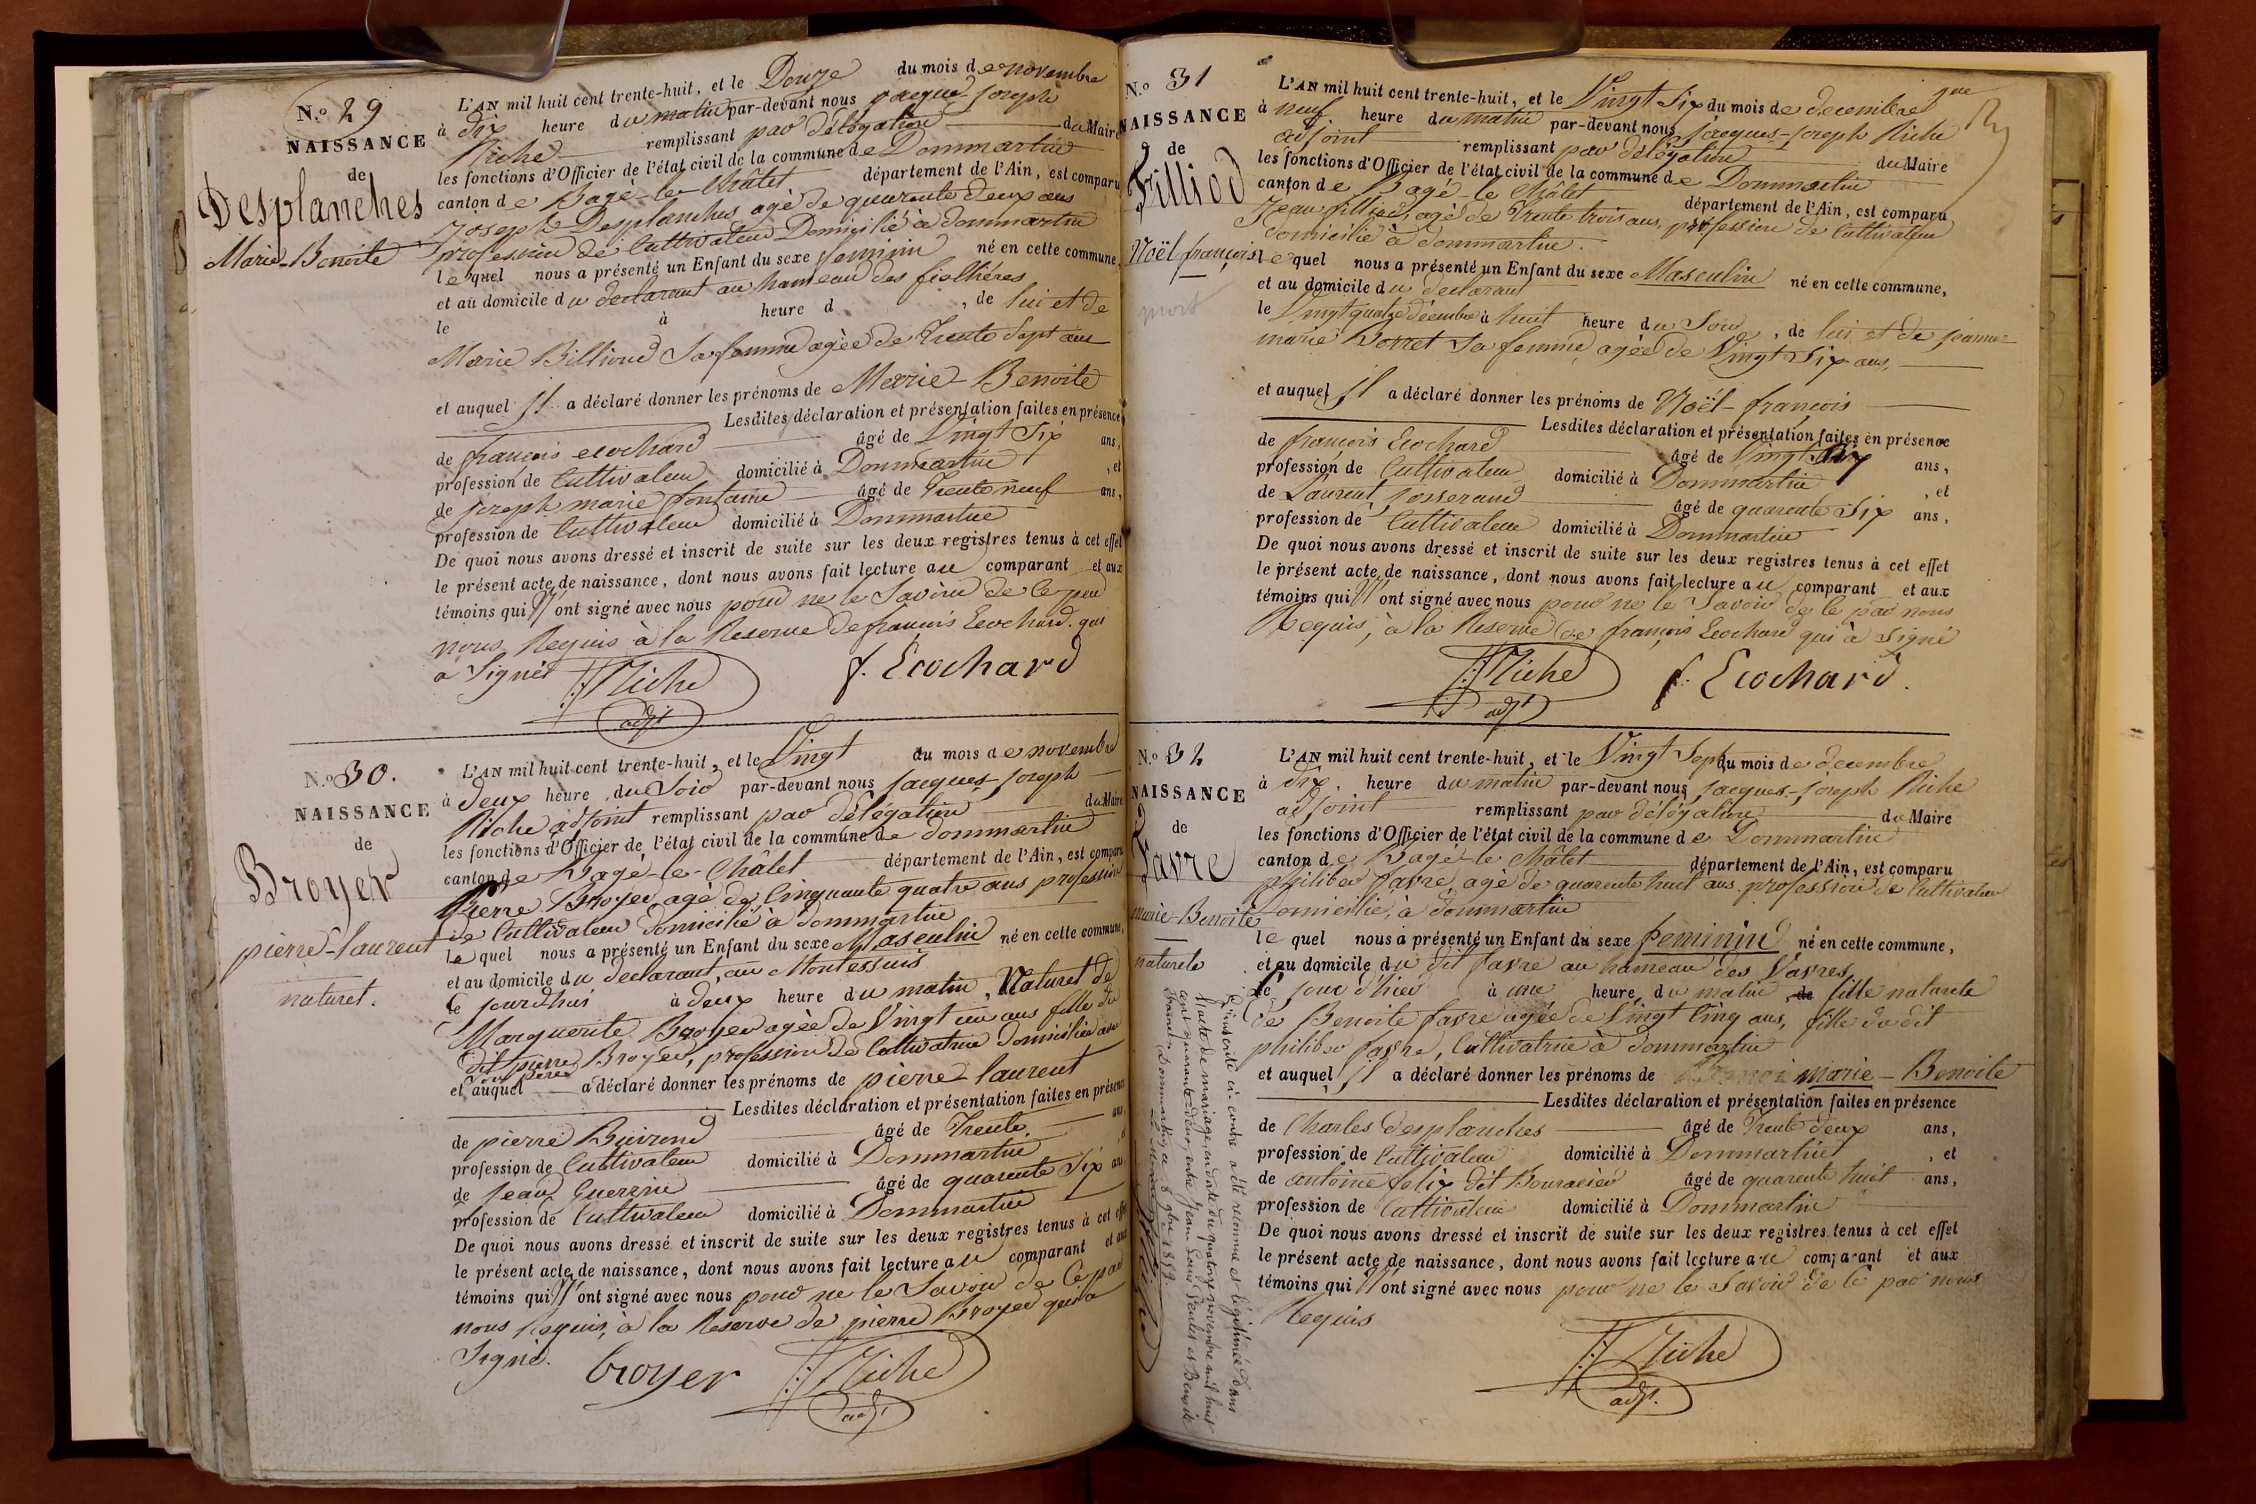 N.º 29
NAISSANCE
de
Desplanches
Marie-Benoite
L'AN mil huit cent trente-huit, et le Douze du mois de novembre
à dix heure du matin par-devant nous jacque-joseph
Riche remplissant par délégation du Maire
les fonctions d'Officier de l'état civil de la commune de Dommartin
canton de Bagé-le-Châtel département de l'Ain, est comparu
joseph Desplanches, agé de quarante deux ans
profession de Cultivateur Domicilié à dommartin
lequel nous a présenté un Enfant du sexe feminin né en cette commune,
et au domicile du declarant au hameau des
le à heure d , de lui et de
Marie Billioud Sa femme agée de Trente Sept ans
et auquel Il a déclaré donner les prénoms de Marie-Benoite
Lesdites déclaration et présentation faites en présence
de françois ecochard âgé de Vingt Six ans,
profession de Cultivateur domicilié à Dommartin , et
de joseph marie fontaine âgé de Trente neuf ans,
profession de Cultivateur domicilié à Dommartin
De quoi nous avons dressé et inscrit de suite sur les deux registres tenus à cet effet
le présent acte de naissance, dont nous avons fait lecture au comparant et aux
témoins qui N' ont signé avec nous pour ne le Savoir de ce par
nous Requis à la Reserve de françois Ecochard. qui
a Signé
JJ Riche
adjt
f. Ecochard
N.º 30.
NAISSANCE
de
Broyer
pierre-laurent
naturel.
L'AN mil huit cent trente-huit, et le Vingt du mois de novembre
à deux heure du Soir par-devant nous jacques-joseph
Riche adjoint remplissant par délégation du Maire
les fonctions d'Officier de l'état civil de la commune de dommartin
canton de Bagé-le-Châtel département de l'Ain, est comparu
Pierre Broyer, agé de Cinquante quatre ans profession
de Cultivateur domicilié à dommartin
lequel nous a présenté un Enfant du sexe Masculin né en cette commune,
et au domicile du declarant, au Montessuis
le jourdhui à deux heure du matin, Naturel de
Marguerite Broyer agée de Vingt un ans fille du
dit pierre Broyer, profession de Cultivatrice domiciliée avec
son père
et auquel a déclaré donner les prénoms de pierre-laurent
Lesdites déclaration et présentation faites en présence
de pierre Buirond âgé de Trente. ans,
profession de Cultivateur domicilié à Dommartin , et
de Jean Guerrin âgé de quarente Six ans,
profession de Cultivateur domicilié à Dommartin
De quoi nous avons dressé et inscrit de suite sur les deux registres tenus à cet effet
le présent acte de naissance, dont nous avons fait lecture au comparant et aux
témoins qui N' ont signé avec nous pour ne le Savoir de Ce par
nous Requis, à la Reserve de pierre Broyer qui a
Signé.
broyer
JJ Riche
adjt
N.º 31
NAISSANCE
de
Filliod
Noël françois
mort
L'AN mil huit cent trente-huit, et le Vingt Six du mois de decembre
à neuf heure du matin par-devant nous jacques-joseph Riche
adjoint remplissant par délégation du Maire
les fonctions d'Officier de l'état civil de la commune de Dommartin
canton de Bagé-le-Châtel département de l'Ain, est comparu
Jean filliod, agé de Trente trois ans, profession de Cultivateur
domicilié à dommartin.
lequel nous a présenté un Enfant du sexe Masculin né en cette commune,
et au domicile du declarant
le Vingt quatre décembre à huit heure du Soir, de lui et de jeanne
marie Borret Sa femme agée de Vingt Six ans,
et auquel Il a déclaré donner les prénoms de Noël-françois
Lesdites déclaration et présentation faites en présence
de françois Ecochard âgé de Vingt Six ans,
profession de Cultivateur domicilié à Dommartin , et
de Laurent josserand âgé de quarente Six ans,
profession de Cultivateur domicilié à Dommartin
De quoi nous avons dressé et inscrit de suite sur les deux registres tenus à cet effet
le présent acte de naissance, dont nous avons fait lecture au comparant et aux
témoins qui N' ont signé avec nous pour ne le Savoir de ce par nous
Requis, à la Reserve de françois Ecochard qui à Signé
JJ Riche
adjt
f. Ecochard.
N.º 32
NAISSANCE
de
Favre
marie-Benoite
naturele
L'AN mil huit cent trente-huit, et le Vingt Sept du mois de decembre
à dix. heure du matin par-devant nous jacques-joseph Riche
adjoint remplissant par délégation du Maire
les fonctions d'Officier de l'état civil de la commune de Dommartin
canton de Bagé-le-Châtel département de l'Ain, est comparu
philiber favre, agé de quarente huit ans profession de Cultivateur
Domicilié, à dommartin
lequel nous a présenté un Enfant du sexe feminin né en cette commune,
et au domicile du dit favre au hameau des Vavres
le jour d'hier à une heure du matin, de fille naturele
de Benoite favre agée de Vingt Cinq ans, fille du dit
philiber favre, Cultivatrice à dommartin
et auquel Il a déclaré donner les prénoms de marie-Benoite
Lesdites déclaration et présentation faites en présence
de Charles desplanches âgé de Trente deux ans,
profession de Cultivateur domicilié à Dommartin , et
de antoine felix dit Bourdeier âgé de quarente huit ans,
profession de Cultivateur domicilié à Dommartin
De quoi nous avons dressé et inscrit de suite sur les deux registres tenus à cet effet
le présent acte de naissance, dont nous avons fait lecture au comparant et aux
témoins qui N' ont signé avec nous pour ne le Savoir de ce par nous
Requis
JJ Riche
adjt.
L'inscrite ci-contre a été reconnue et légitimée dans
l'acte de mariage, en date du quatorze novembre mil huit
cent quarante-deux, entre Jean Louis et Benoite
Dommartin, ce 8 9bre 1859.